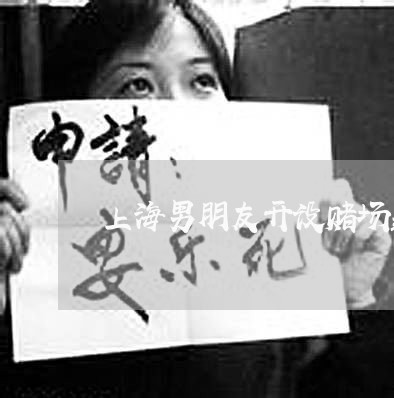 申請:
上海男朋友开设赌场
安乐死